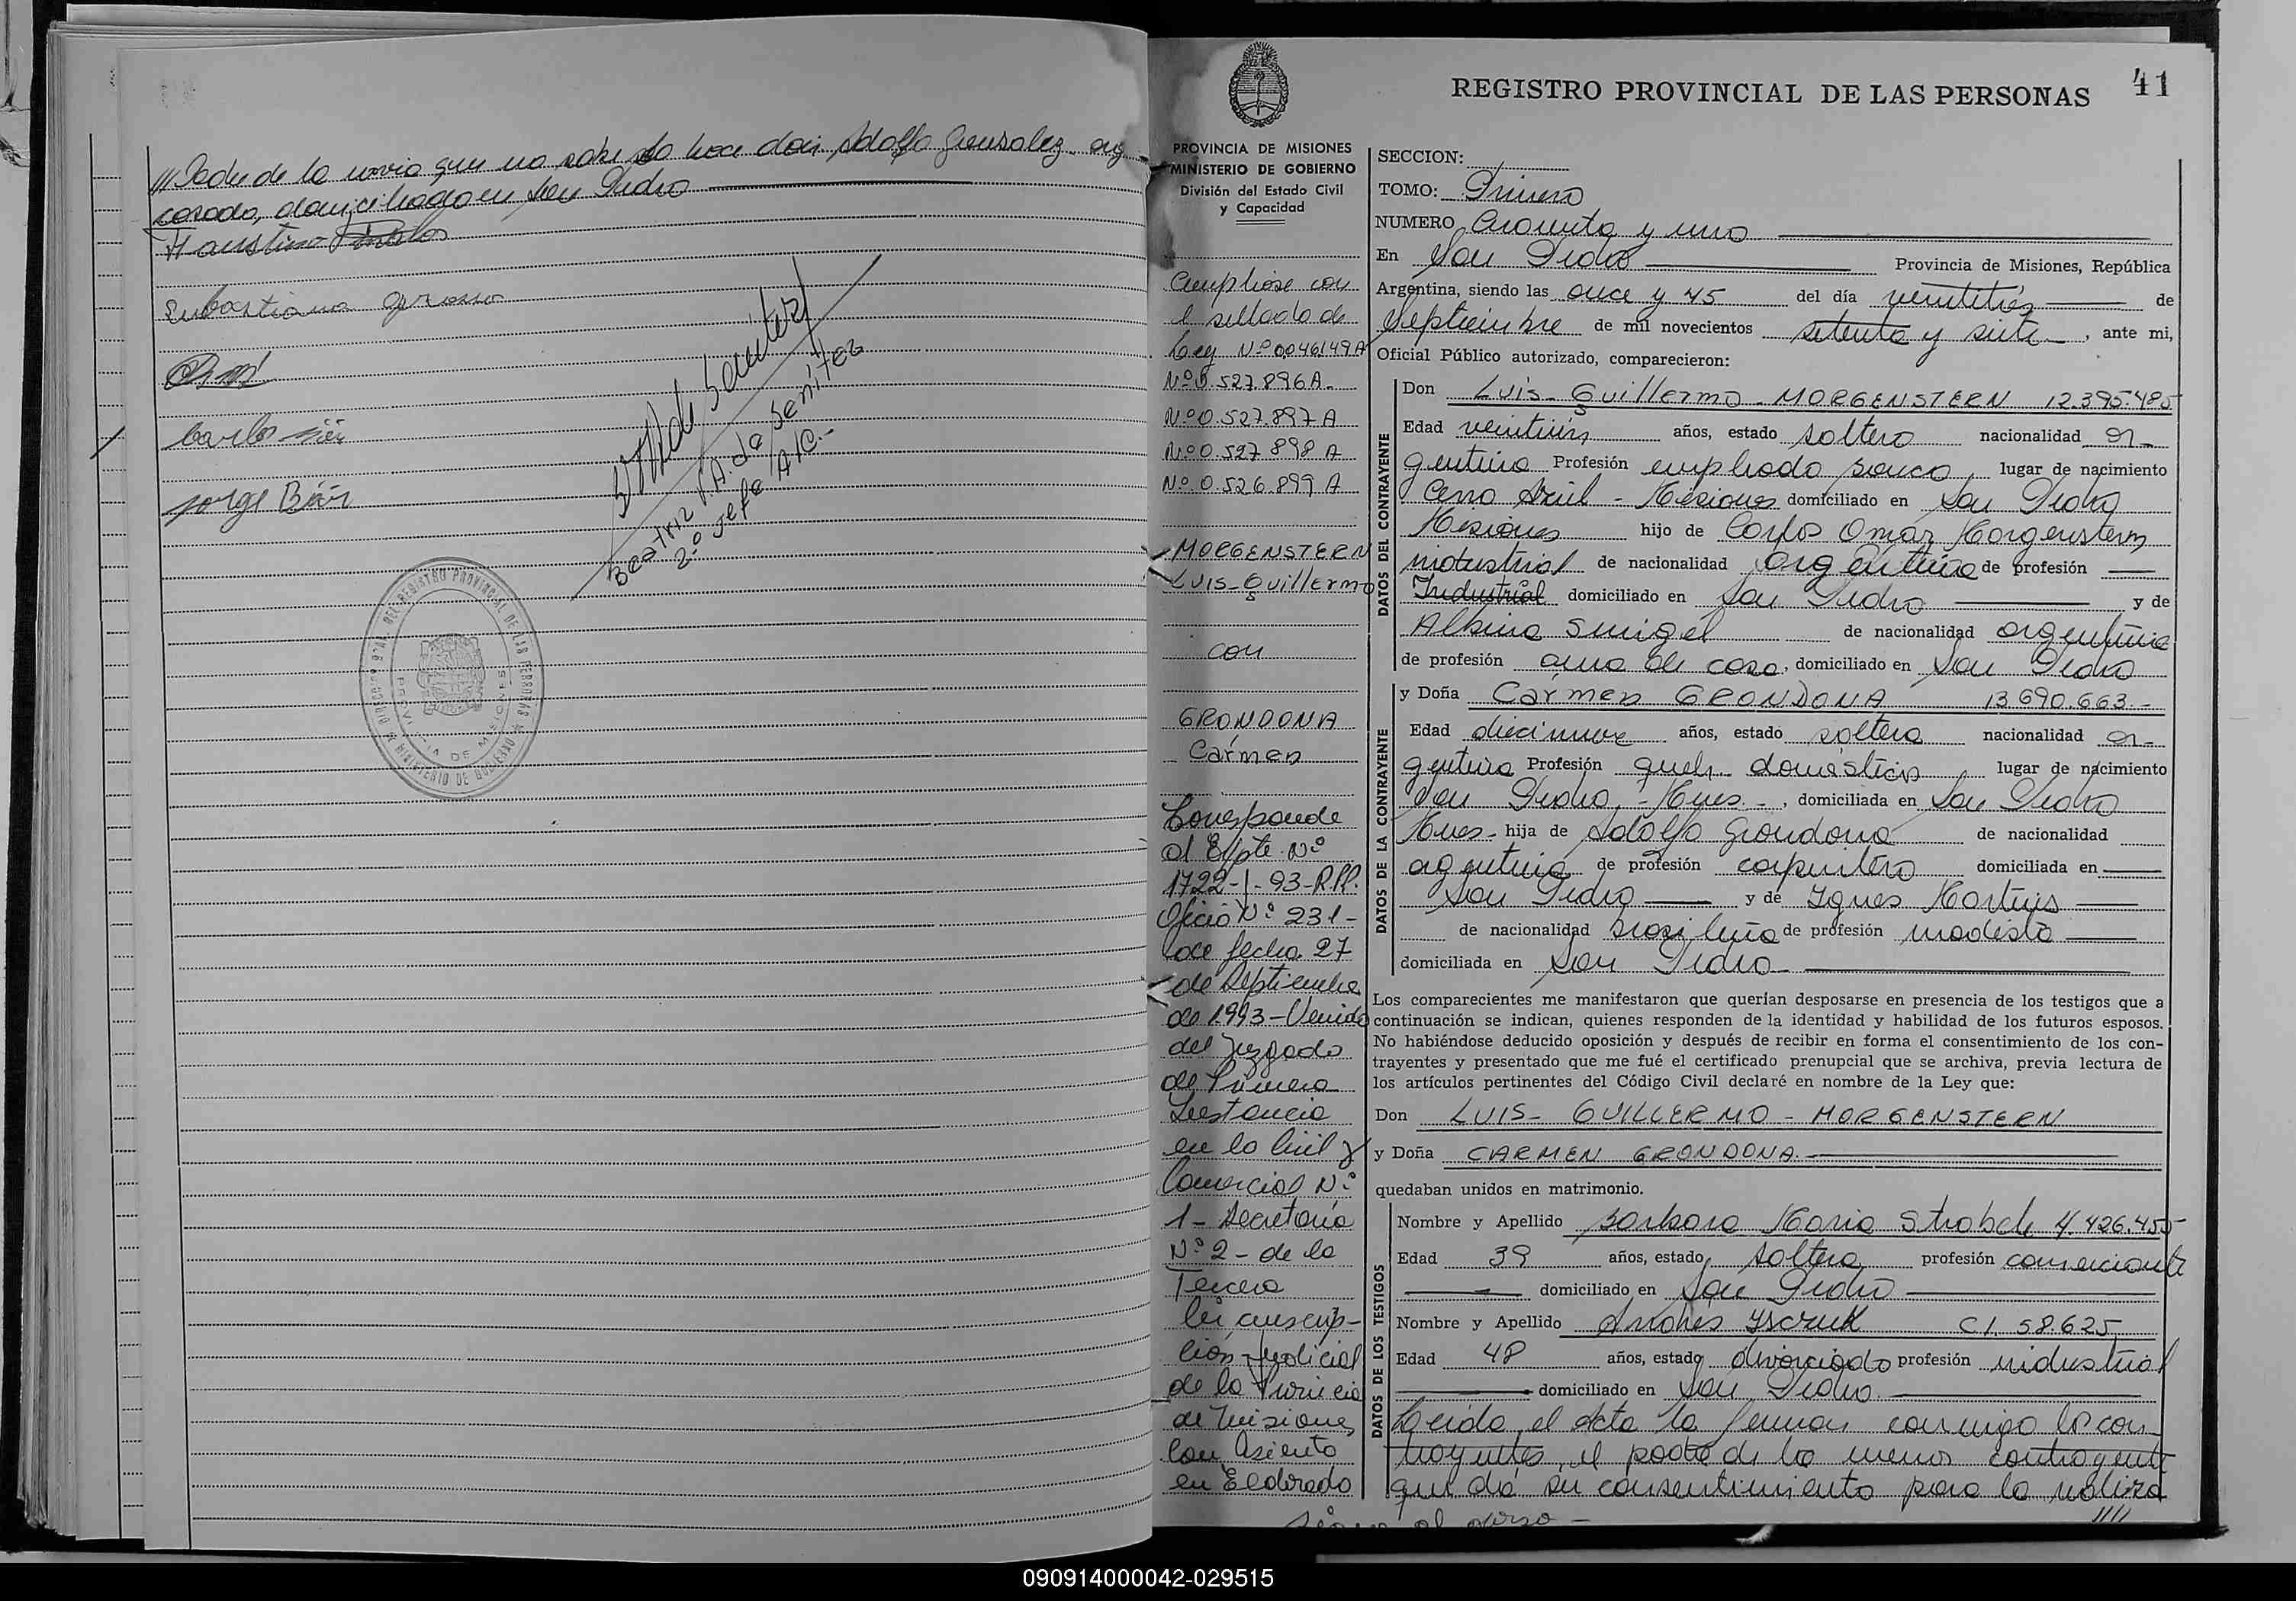 /// Padre de la novia que no sabe lo hace don Adolfo Gonzalez arg
casado, domiciliado en San Pedro
Faustino
Sebastiana
Carlos
Jorge Bär
Beatriz V.A. de Benítez
2º Jefe A/C.-
REGISTRO PROVINCIAL DE LAS PERSONAS
PROVINCIA DE MISIONES
MINISTERIO DE GOBIERNO
41
REGISTRO PROVINCIAL DE LAS PERSONAS
PROVINCIA DE MISIONES
MINISTERIO DE GOBIERNO
División del Estado Civil
y Capacidad
Cumpliose con
el sellado de
Ley Nº 0.046149A
Nº 0.527.896A-
Nº 0.527.897 A
Nº 0.527 898 A
Nº 0.526.899 A
MORGENSTERN
Luis-Guillermo
con
GRONDONA
Cármen
Corresponde
al Expte. Nº
1722-J-93-R.P.P.
Oficio Nº 231-
de fecha 27
de Septiembre
de 1993-Venido
del Juzgado
de Primera
Instancia
en lo Civil y
Comercial Nº
1- Secretaría
Nº 2- de la
Tercera
Circunscrip-
ción Judicial
de la Provincia
de Misiones
con Asiento
en Eldorado
SECCION:
TOMO: Primero
NUMERO Cuarenta y uno
En San Pedro Provincia de Misiones, República
Argentina, siendo las once y 45 del día veintitrés de
Septiembre de mil novecientos setenta y siete , ante mi,
Oficial Público autorizado, comparecieron:
DATOS DEL CONTRAYENTE
Don Luis-Guillermo-MORGENSTERN 12.395.485
Edad veintiún años, estado soltero nacionalidad ar-
gentina Profesión empleado banco lugar de nacimiento
Cerro Azul - Misiones domiciliado en San Pedro
Misiones hijo de Carlos Omar Morgenstern
industrial de nacionalidad argentina de profesión
Industrial domiciliado en San Pedro y de
Albina Smigel de nacionalidad argentina
de profesión ama de casa, domiciliado en San Pedro
DATOS DE LA CONTRAYENTE
y Doña Cármen GRONDONA 13.690.663.-
Edad diecinueve años, estado soltera nacionalidad ar-
gentina Profesión queh. domésticos lugar de nacimiento
San Pedro, -Mnes.-, domiciliada en San Pedro
Mnes- hija de Adolfo Grondona de nacionalidad
argentina de profesión carpintero domiciliada en
San Pedro y de Ignes Martins
de nacionalidad brasileña de profesión modista
domiciliada en San Pedro
Los comparecientes me manifestaron que querían desposarse en presencia de los testigos que a
continuación se indican, quienes responden de la identidad y habilidad de los futuros esposos.
No habiéndose deducido oposición y después de recibir en forma el consentimiento de los con-
trayentes y presentado que me fué el certificado prenupcial que se archiva, previa lectura de
los artículos pertinentes del Código Civil declaré en nombre de la Ley que:
Don LUIS- GUILLERMO - MORGENSTERN
y Doña CARMEN GRONDONA.-
quedaban unidos en matrimonio.
DATOS DE LOS TESTIGOS
Nombre y Apellido Barbara Maria Strobele 4.426.455
Edad 39 años, estado soltera profesión comerciante
domiciliado en San Pedro
Nombre y Apellido Andrés Ysczuk C.I. 58.625
Edad 48 años, estado divorciado profesión industrial
domiciliado en San Pedro.
Leída el Acta la firman conmigo los con-
trayentes, el padre de la menor contrayente
que dá su consentimiento para la realiza
////
Sigue al dorso -
090914000042-029515